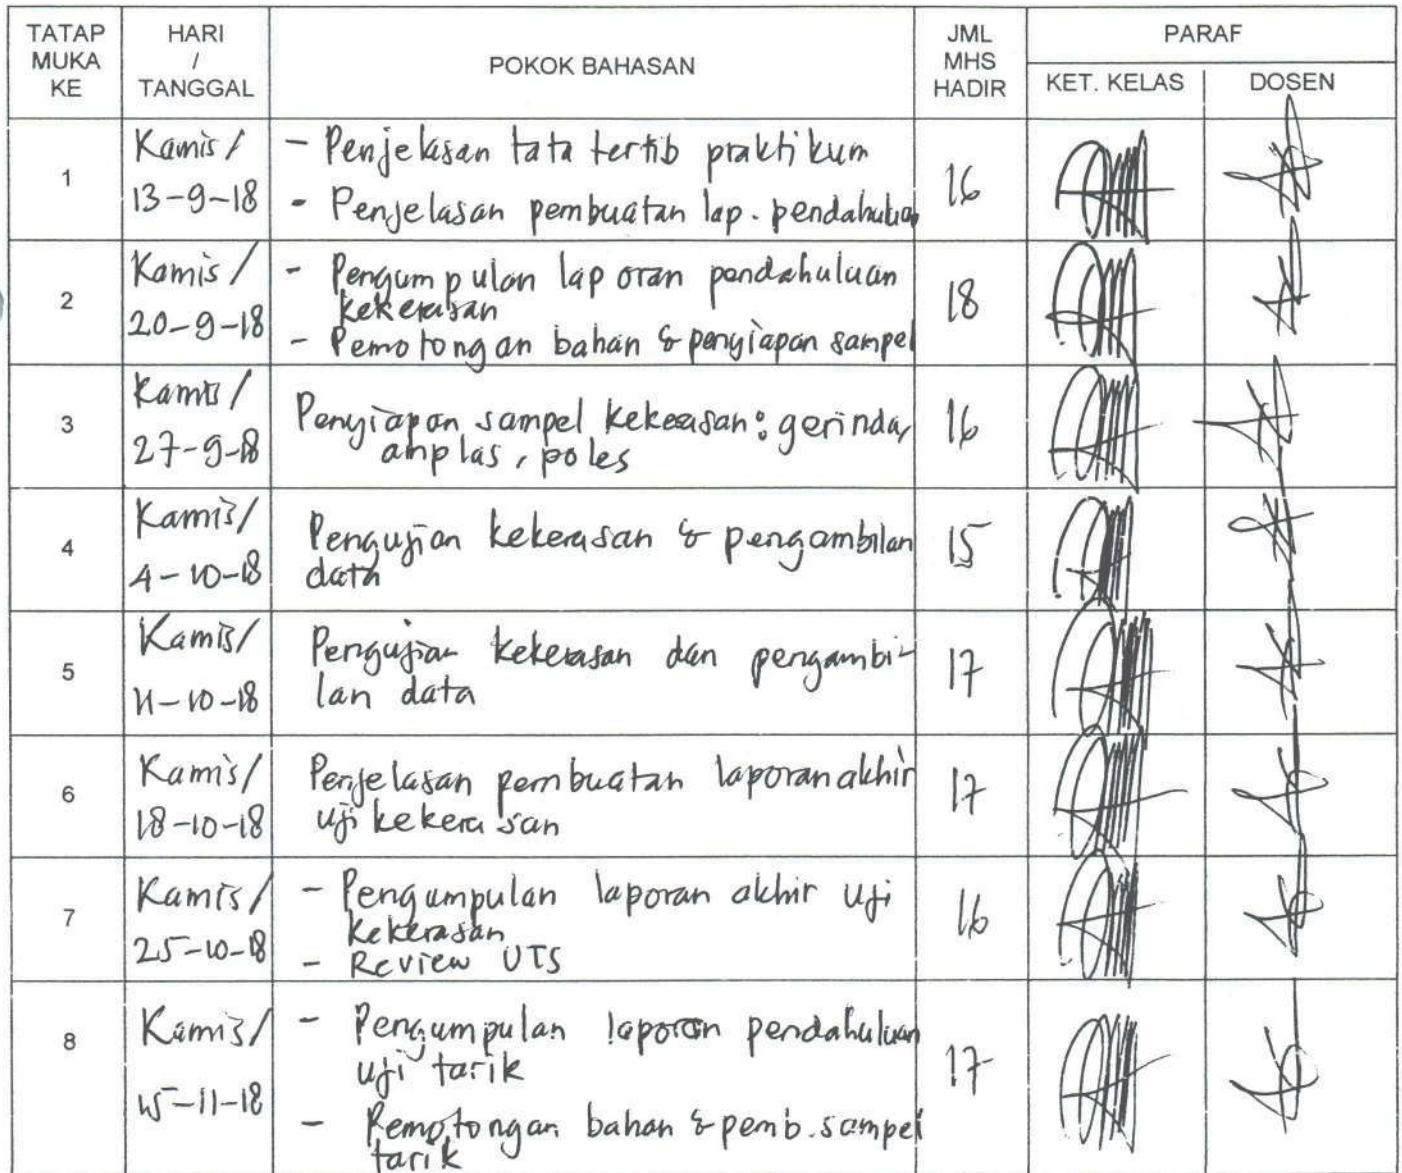 TATAP MUKA KE
HARI / TANGGAL
POKOK BAHASAN
JML MHS HADIR
PARAF
KET. KELAS
DOSEN
1
Kamis /
13-9-18
- Penjelasan tata tertib praktikum
- Penjelasan pembuatan lap. pendahuluan
16
2
Kamis /
20-9-18
- Pengumpulan laporan pendahuluan
kekerasan
- Pemotongan bahan & penyiapan sampel
18
3
Kamis /
27-9-18
Penyiapan sampel kekerasan: gerinda,
amplas, poles
16
4
Kamis/
4-10-18
Pengujian kekerasan & pengambilan
data
15
5
Kamis/
11-10-18
Pengujian kekerasan dan pengambi-
lan data
17
6
Kamis/
18-10-18
Penjelasan pembuatan laporan akhir
uji kekerasan
17
7
Kamis/
25-10-18
- Pengumpulan laporan akhir uji
kekerasan
- Review UTS
16
8
Kamis/
15-11-18
- Pengumpulan laporan pendahuluan
uji tarik
- Pemotongan bahan & pemb. sampel
tarik
17